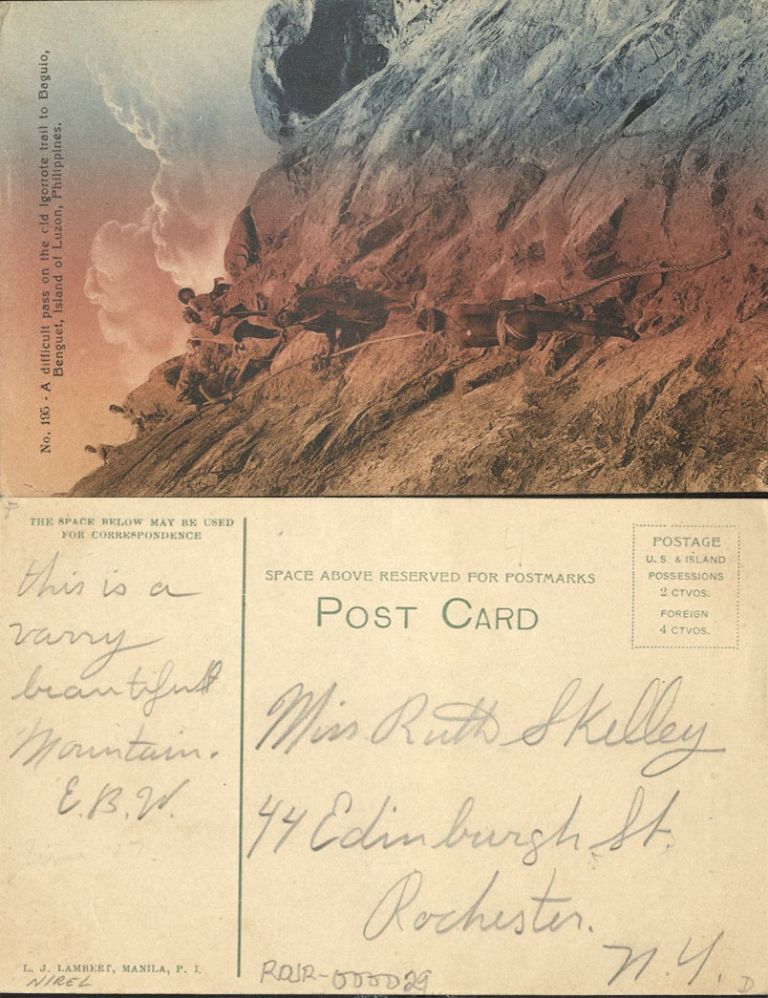 No. 195 - A difficult pass on the old Igorrote trail to Baguio,
Benguet, Island of Luzon, Philippines.
THE SPACE BELOW MAY BE USED
FOR CORRESPONDENCE
this is a
varry
beautifull
Mountain.
E.B.W.
L. J. LAMBERT, MANILA, P. I.
NIREL
SPACE ABOVE RESERVED FOR POSTMARKS
POST CARD
POSTAGE
U. S. & ISLAND
POSSESSIONS
2 CTVOS.
FOREIGN
4 CTVOS.
Miss Ruth Skelley
44 Edinburgh St.
Rochester.
N.Y.
D